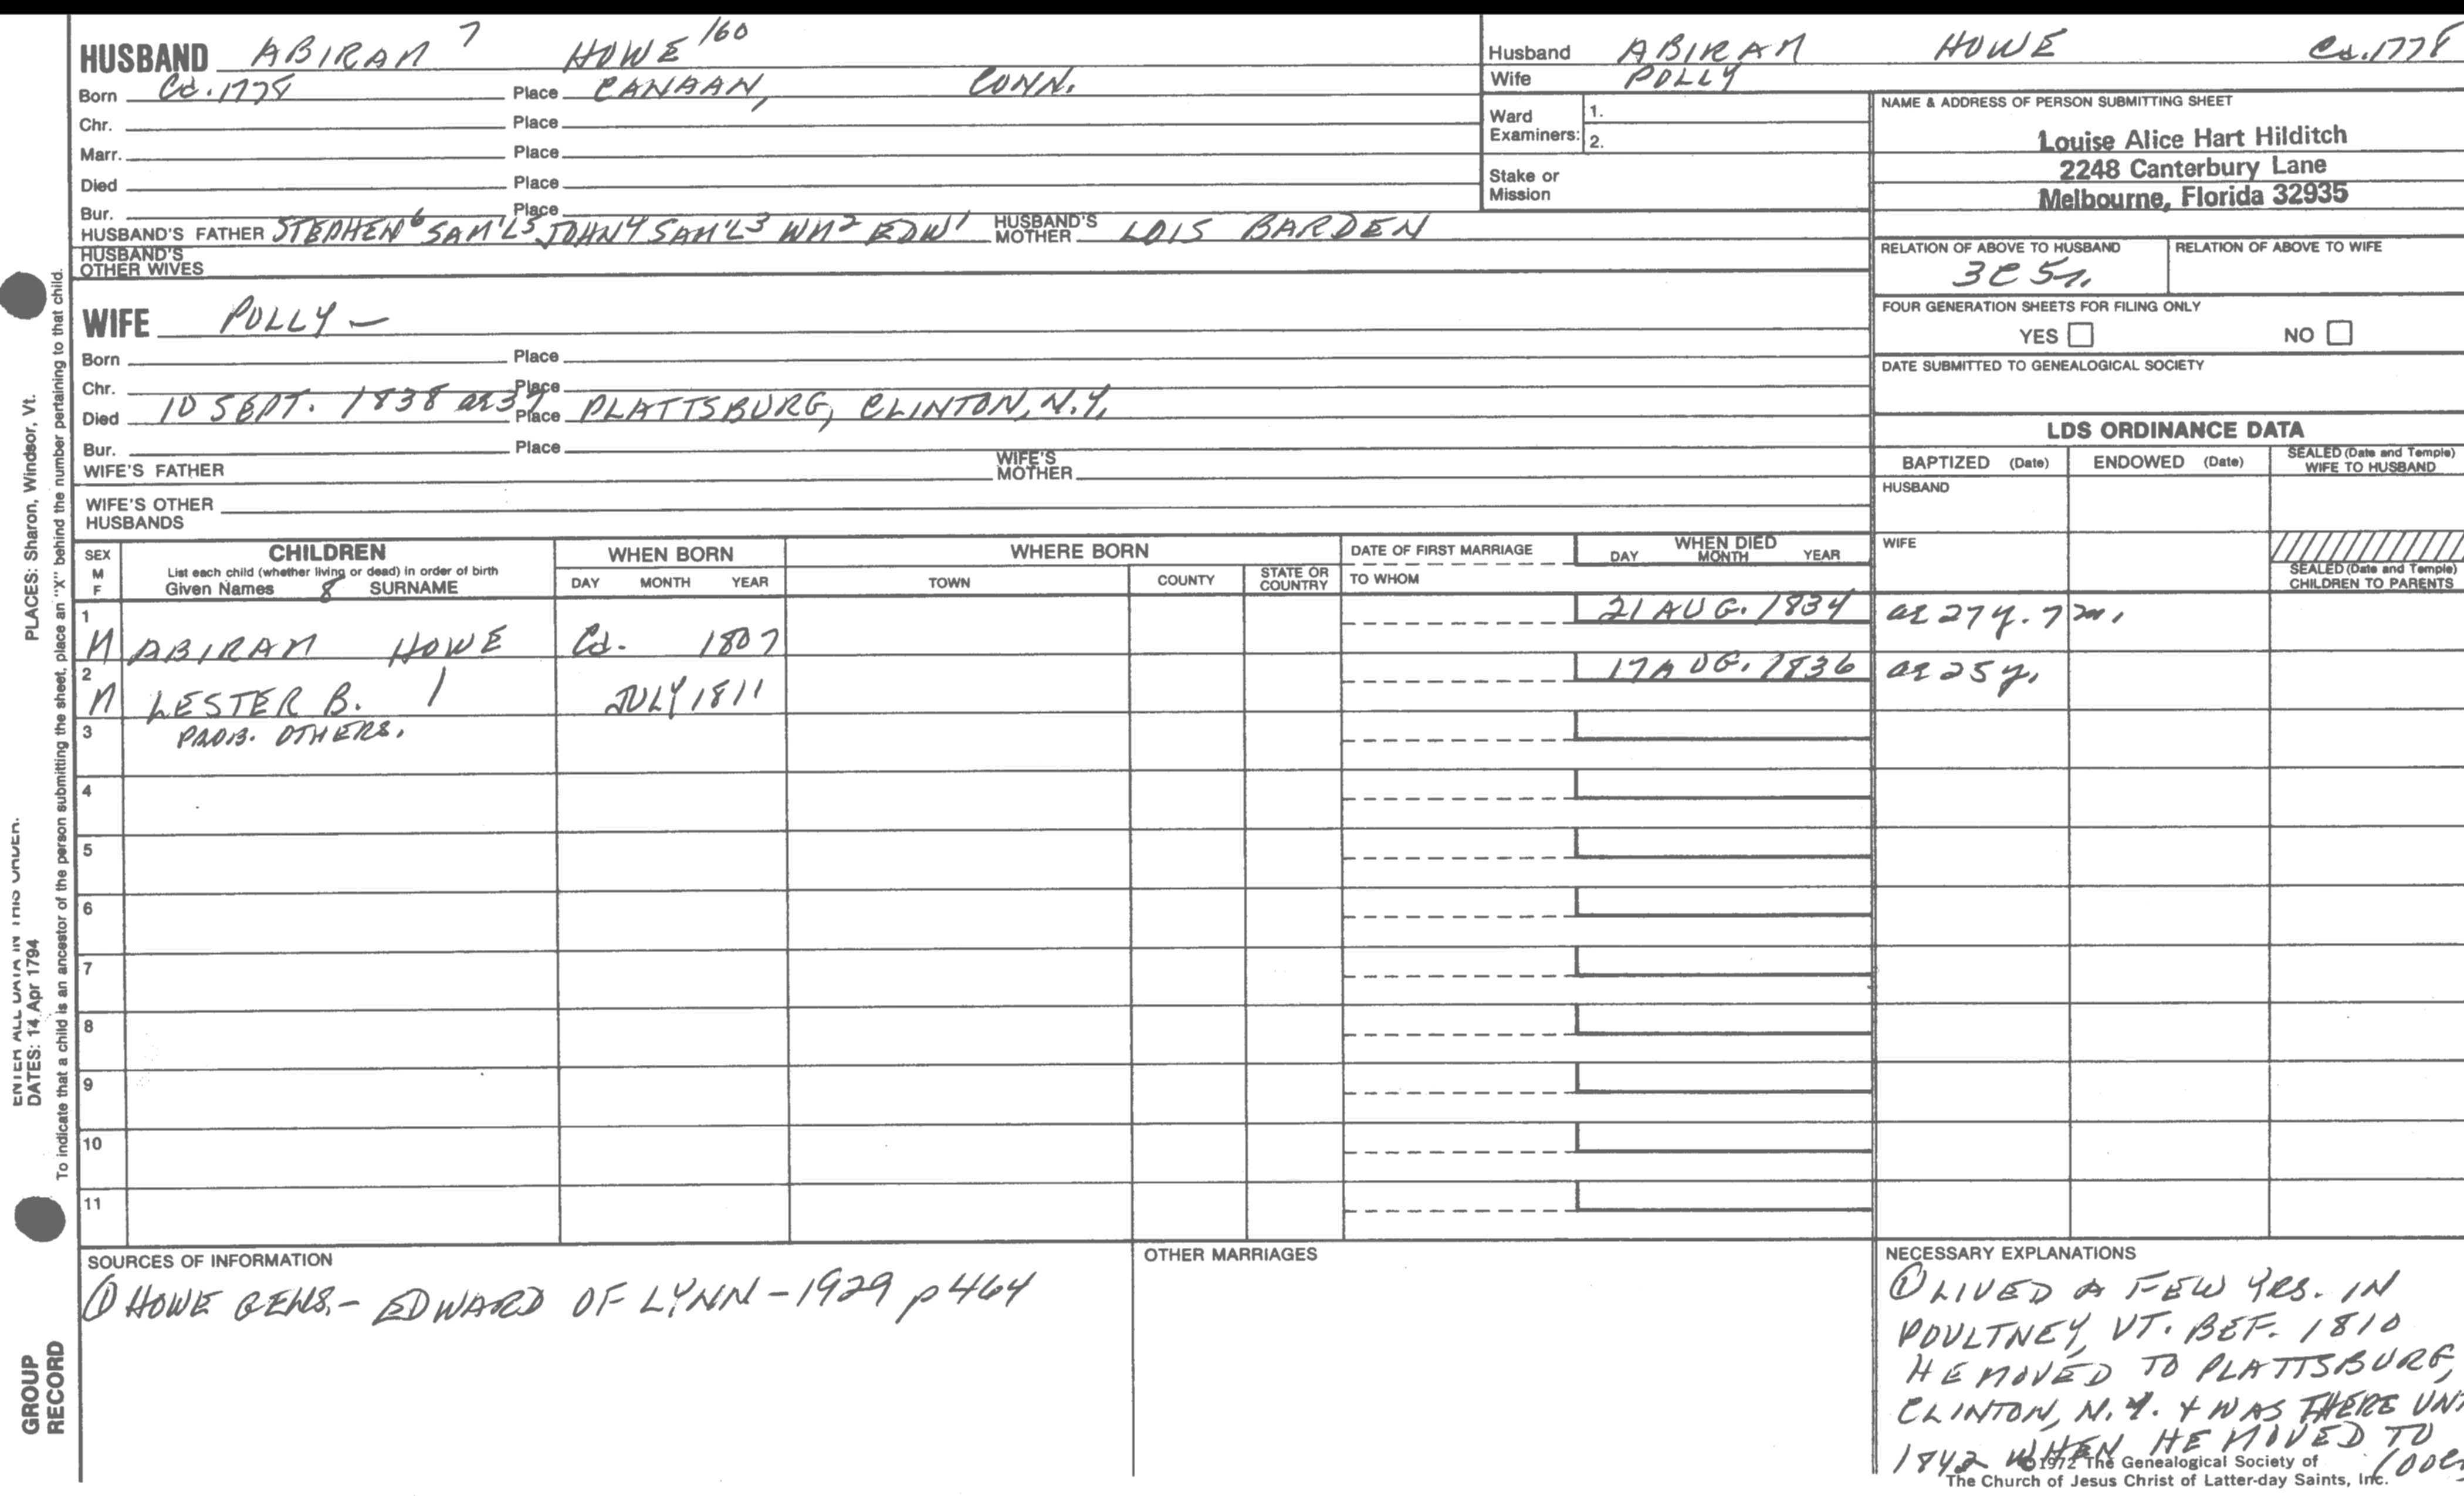 HUSBAND ABIRAM 7 HOWE 160
Born Ca. 1778 Place CANAAN, CONN.
Chr. Place
Marr. Place
Died Place
Bur. Place
HUSBAND'S FATHER STEPHEN6 SAM'L5 JOHN4 SAM'L3 WM2 EDW1 HUSBAND'S MOTHER LOIS BARDEN
HUSBAND'S OTHER WIVES
WIFE POLLY —
Born Place
Chr. Place
Died 10 SEPT. 1838 ae 37 Place PLATTSBURG, CLINTON, N.Y.
Bur. Place
WIFE'S FATHER WIFE'S MOTHER
WIFE'S OTHER HUSBANDS
Husband ABIRAM HOWE Ca. 1778
Wife POLLY
Ward Examiners: 1. 2.
Stake or Mission
NAME & ADDRESS OF PERSON SUBMITTING SHEET
Louise Alice Hart Hilditch
2248 Canterbury Lane
Melbourne, Florida 32935
RELATION OF ABOVE TO HUSBAND RELATION OF ABOVE TO WIFE
3C5r.
FOUR GENERATION SHEETS FOR FILING ONLY
YES NO
DATE SUBMITTED TO GENEALOGICAL SOCIETY
LDS ORDINANCE DATA
BAPTIZED (Date) ENDOWED (Date) SEALED (Date and Temple) WIFE TO HUSBAND
HUSBAND
WIFE
SEALED (Date and Temple) CHILDREN TO PARENTS
SEX M F
CHILDREN
List each child (whether living or dead) in order of birth
Given Names 8 SURNAME
WHEN BORN
DAY MONTH YEAR
WHERE BORN
TOWN COUNTY STATE OR COUNTRY
DATE OF FIRST MARRIAGE
TO WHOM
WHEN DIED
DAY MONTH YEAR
1 M ABIRAM HOWE Ca. 1807 21 AUG. 1834 ae 27 y. 7 m.
2 M LESTER B. JULY 1811 17 AUG. 1836 ae 25 y.
3 PROB. OTHERS.
4
5
6
7
8
9
10
11
SOURCES OF INFORMATION
① HOWE GENS. - EDWARD OF LYNN - 1929 p 464
OTHER MARRIAGES
NECESSARY EXPLANATIONS
① LIVED A FEW YRS. IN
POULTNEY, VT. BEF. 1810
HE MOVED TO PLATTSBURG,
CLINTON, N.Y. & WAS THERE
1842 WHEN HE MOVED TO
©1972 The Genealogical Society of
The Church of Jesus Christ of Latter-day Saints, Inc.
PLACES: Sharon, Windsor, Vt.
To indicate that a child is an ancestor of the person submitting the sheet, place an "X" behind the number pertaining to that child.
ENTER ALL DATA IN THIS ORDER.
DATES: 14 Apr 1794
GROUP
RECORD